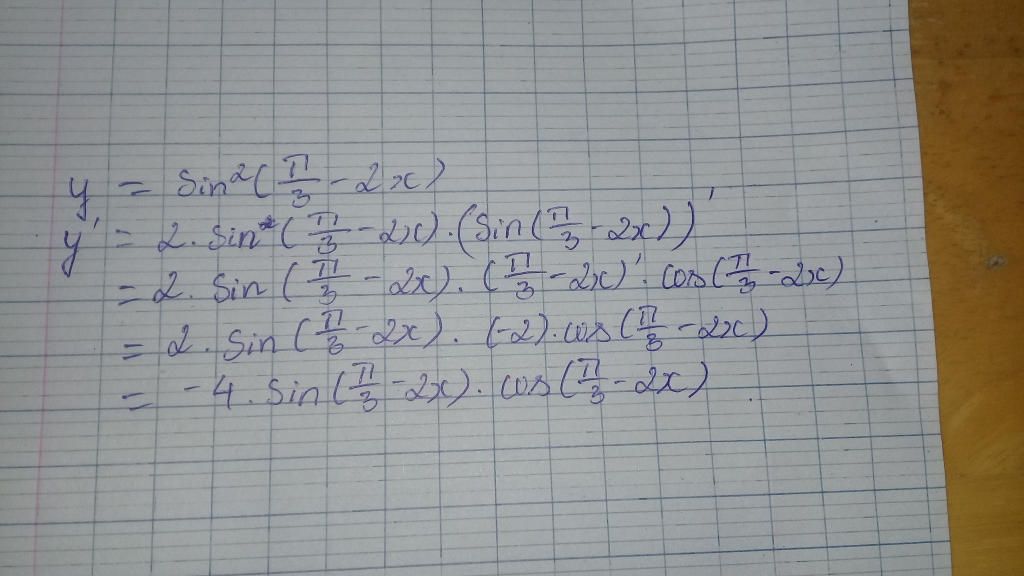 y = sin²(π/3 - 2x)
y' = 2. sin(π/3 - 2x).(sin(π/3 - 2x))'
= 2. sin(π/3 - 2x). (π/3 - 2x)'. cos(π/3 - 2x)
= 2. sin(π/3 - 2x). (-2). cos(π/3 - 2x)
= -4. sin(π/3 - 2x). cos(π/3 - 2x)